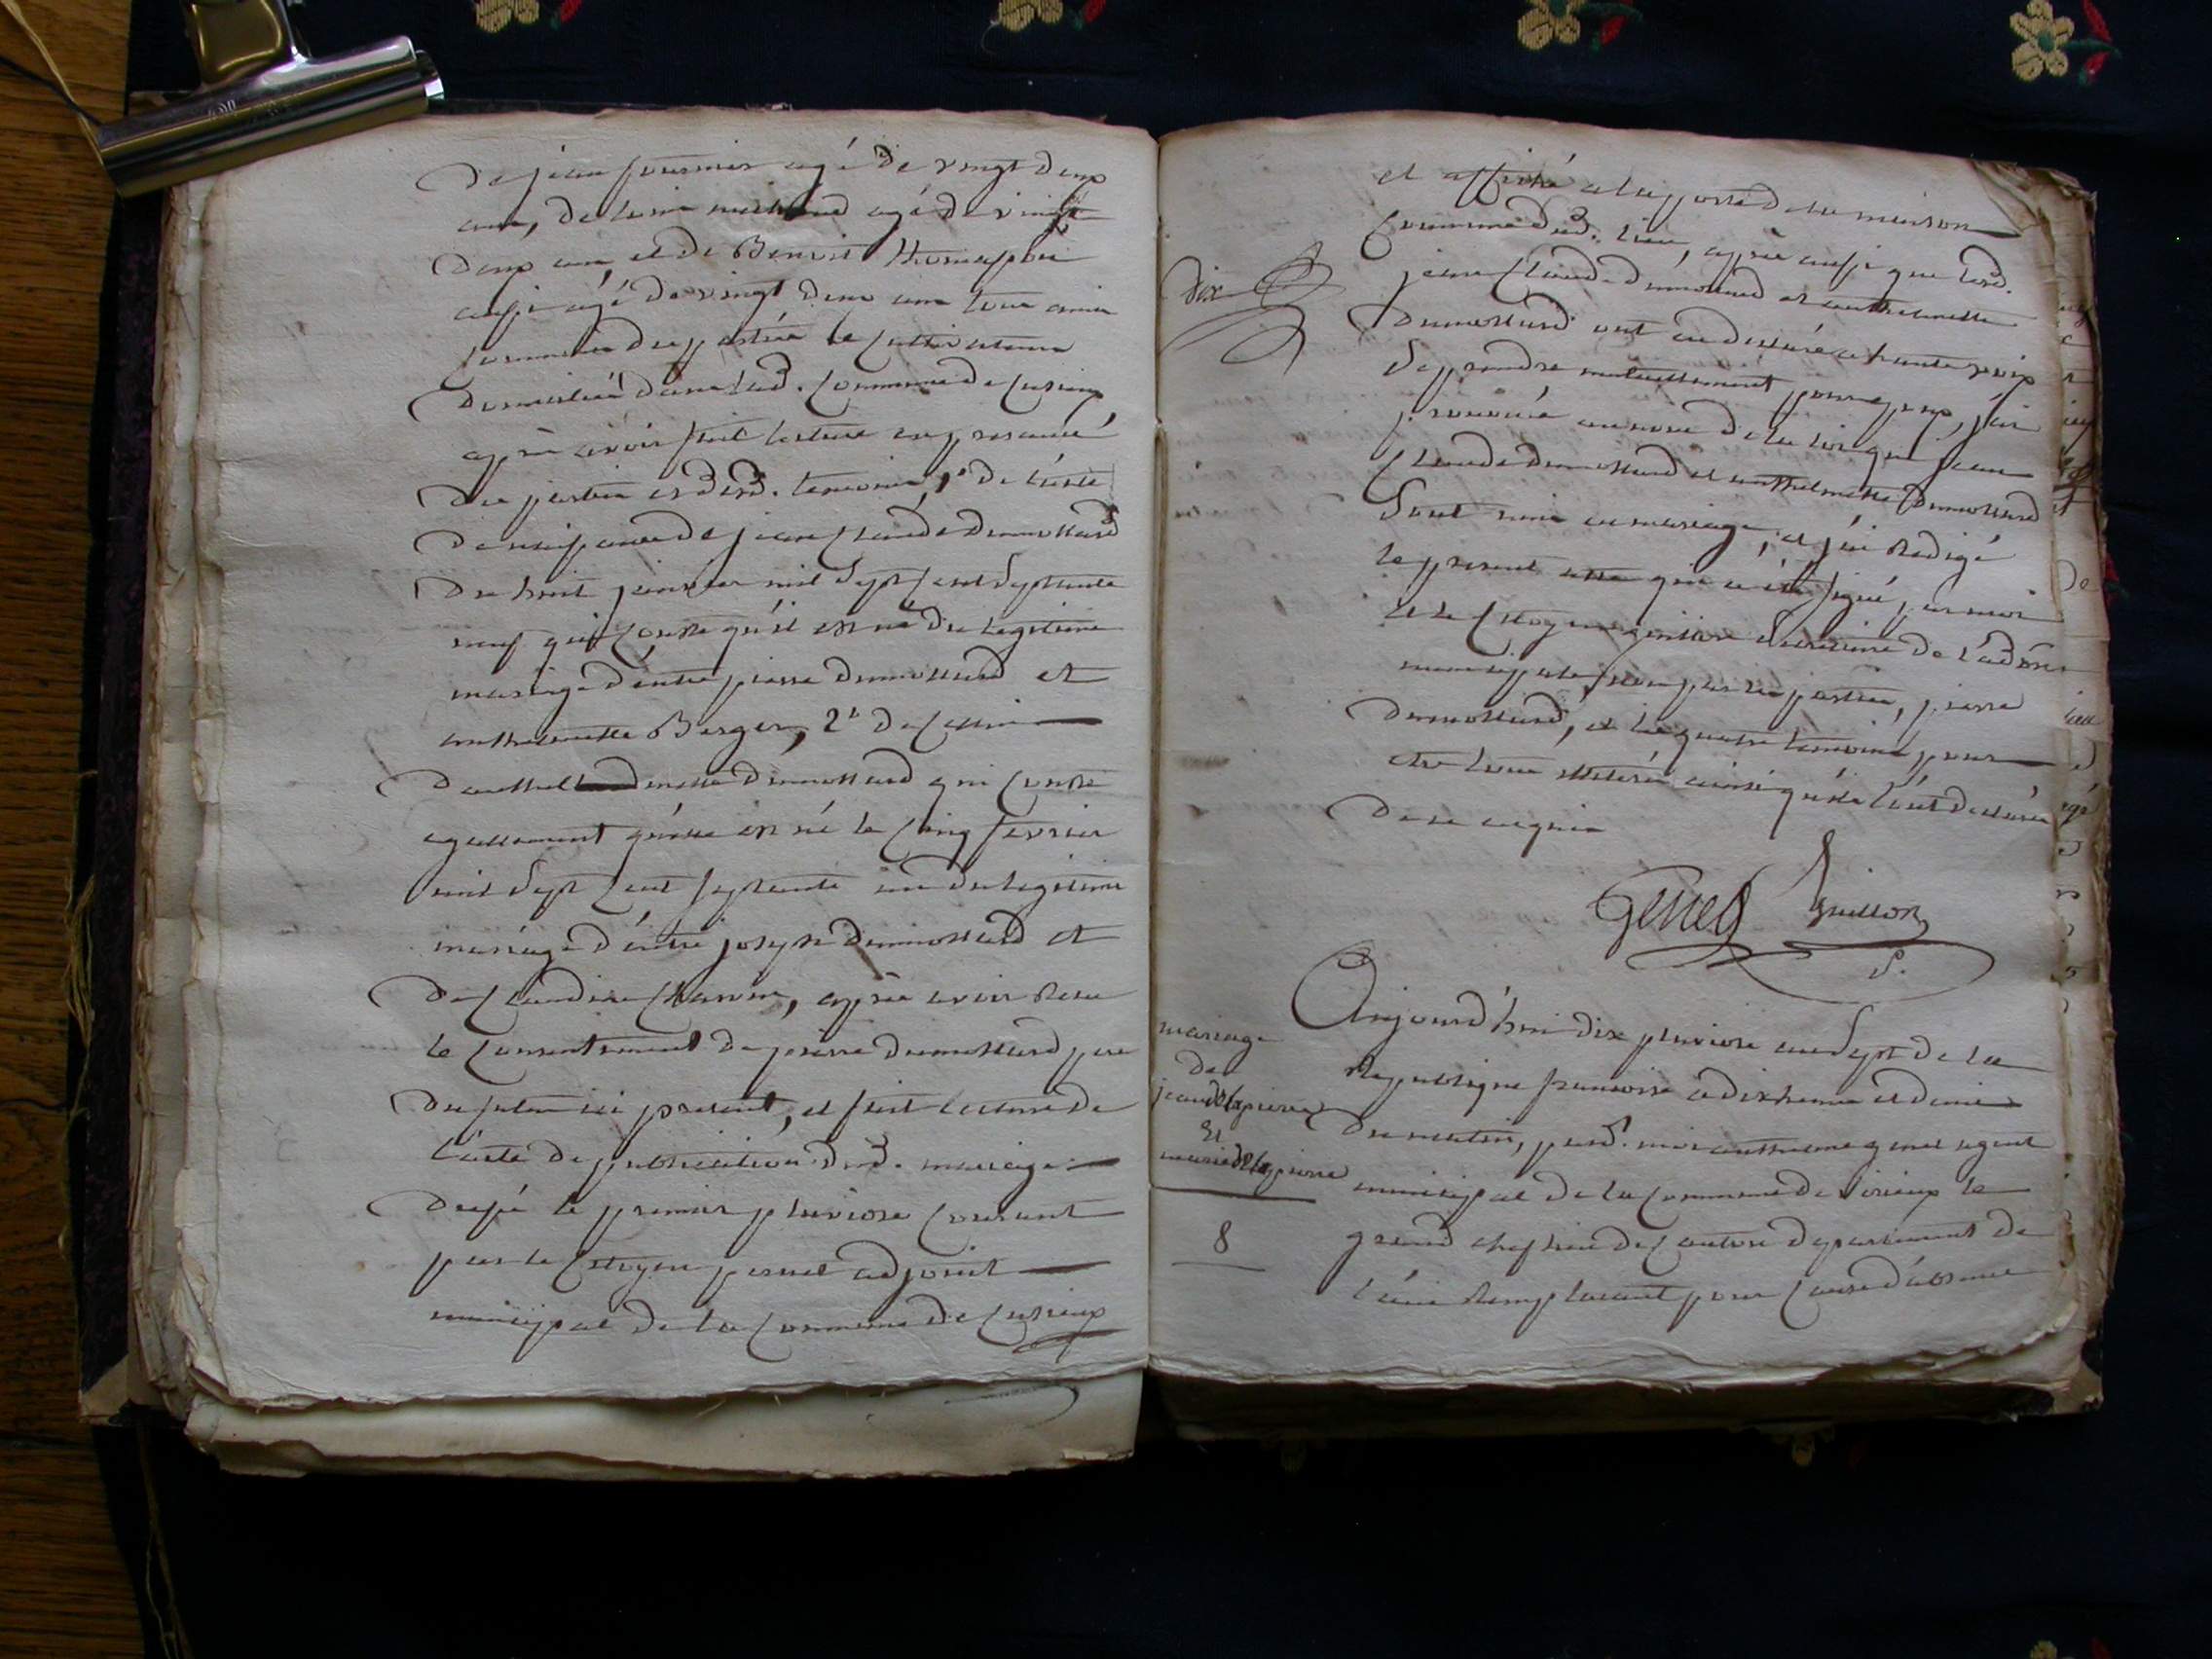 De jean fournier agé de vingt deux
ans, de louis michaud agé de vingt
deux ans et de Benoit thomasson
aussi agé de vingt deux ans tous amis
communs des parties et cultivateurs
domiciliés dans lad. commune de Cuzieux
après avoir fait lecture en presance
des parties et desd. temoins, 1° de l'acte
de naissance de jean Claude Dumollard
du huit janvier mil sept cent septante
neuf qui conste qu'il est né du legitime
mariage d'entre pierre Dumollard et
anthelmette Berger, 2° de celui
d'anthelmette Dumollard qui conste
egallement qu'elle est né le cinq fevrier
mil sept cent septante un du legitime
mariage d'entre joseph Dumollard et
de Claudine Charvin, après avoir reçu
le consentement de pierre dumollard pere
du futur ici present, et fait lecture de
l'acte de publication dud. mariage
dressé le premier pluviose courant
par le Citoyen pernet adjoint
municipal de la commune de Cuzieux
et affiché a la porte de la maison
commune dud. lieu, après aussi que lesd.
jean Claude Dumollard et anthelmette
Dumollard ont eu declaré a haute voix
se prendre mutuellement pour epoux, j'ai
prononcé au nom de la loi que jean
Claude Dumollard et anthelmette Dumollard
sont unis en mariage, et j'ai redigé
le present acte qui a été signé par moi
et le Citoyen secretaire de l'adon
municipale, non par les parties, pierre
Dumollard, et les quatre temoins pour
etre tous illiterés ainsi qu'ils l'ont declarés
de ce enquis
Dix
Genet Guillon
S.
mariage
de
jean delapierre
Et
marie delapierre
8
Aujourd'hui dix pluviose an sept de la
Republique francoise a dix heures et demie
du matin, pard. moi anthelme genet agent
municipal de la commune de virieux le
grand chef lieu de Canton departement de
l'ain remplacant pour cause d'absence